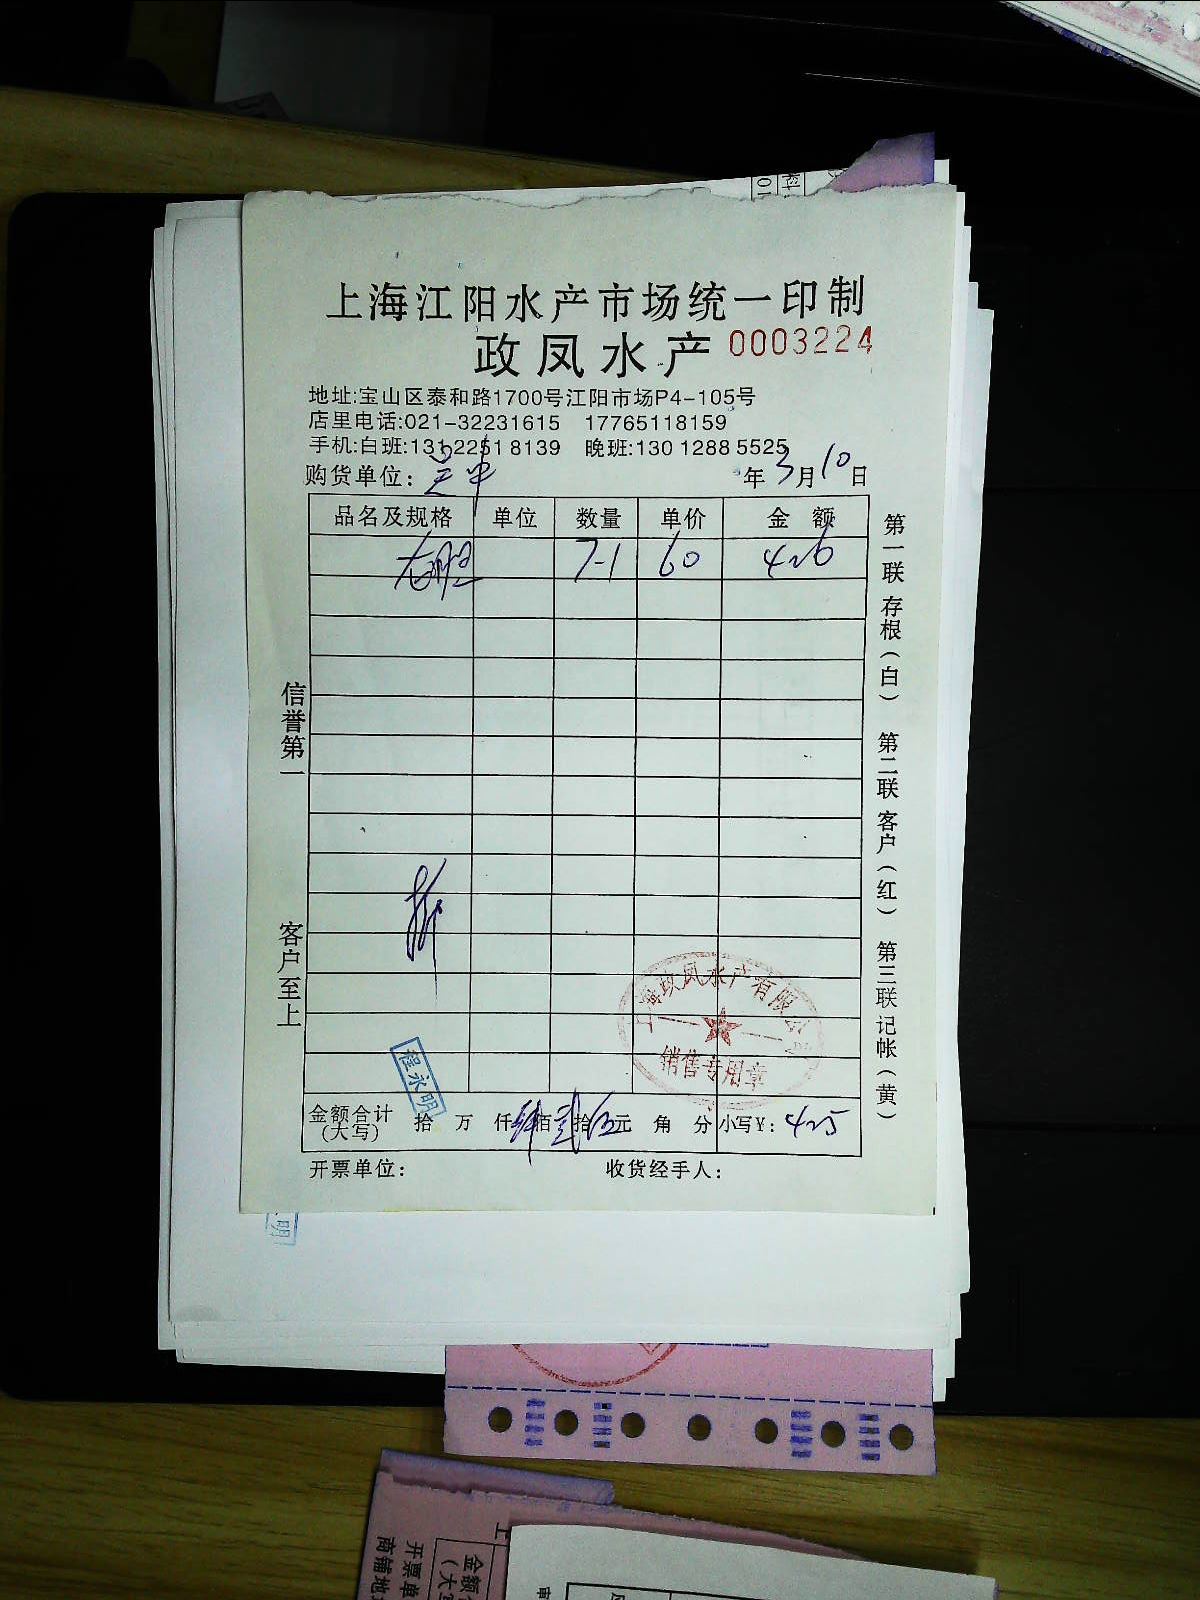 上海江阳水产市场统一印制
政凤水产 0003224
地址:宝山区泰和路1700号江阳市场P4-105号
店里电话:021-32231615 17765118159
手机:白班:131 2251 8139 晚班:130 1288 5525
购货单位: 年3月10日
品名及规格 单位 数量 单价 金额
龙胆 7-1 60 426
信誉第一
客户至上
第一联存根(白) 第二联客户(红) 第三联记帐(黄)
上海政凤水产有限公司
销售专用章
程永明
金额合计(大写) 拾万仟肆佰贰拾伍元角分 小写¥: 425
开票单位: 收货经手人:
明
金额
(大写
开票单
商铺地